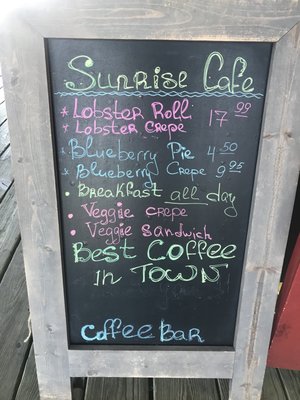 Sunrise Cafe
* Lobster Roll 17.99
* Lobster Crepe
* Blueberry Pie 4.50
* Blueberry Crepe 9.95
• Breakfast all day
• Veggie crepe
• Veggie Sandwich
Best Coffee
in Town
Coffee Bar